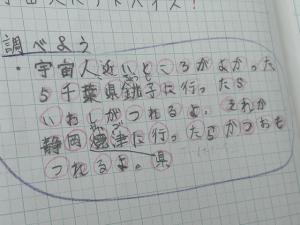 宇宙人にアドバイス！
調べよう
・宇宙人近いところがよかった
ら千葉県銚子に行ったら
いわしがつれるよ。それか
静岡焼津に行ったらかつおも
つれるよ。県